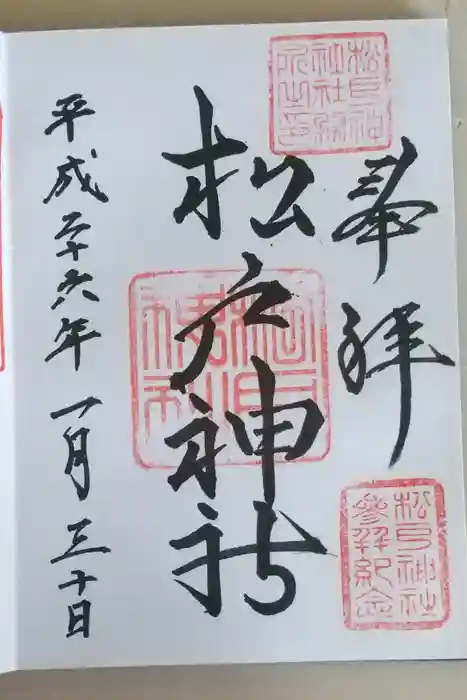 奉拝
松戸神社
平成二十六年一月三十日
松戸神社
参拝紀念
松戸神
社社務
所之印